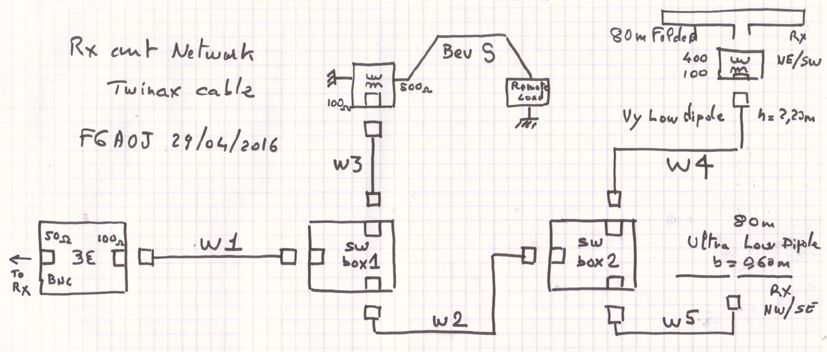 Rx ant Network
Twinax cable
F6AOJ 29/04/2016
Bev S
100Ω
500Ω
Remote
Load
80m Folded
Rx
NE/SW
400
100
Vy Low dipole
h = 2,20m
W3
W4
50Ω
100Ω
BNC
To
Rx
W1
SW
box1
W2
SW
box2
W5
80m
Ultra Low Dipole
h = 0,60m
Rx
NW/SE